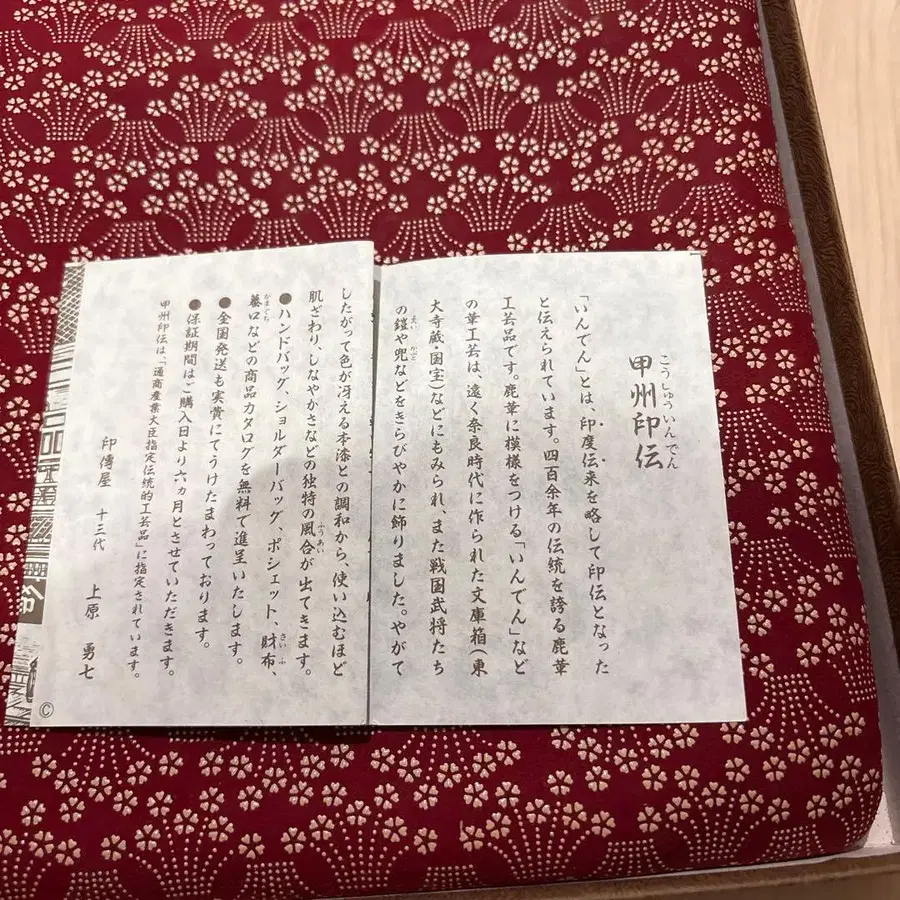 こうしゅういんでん
甲州印伝
「いんでん」とは、印度伝来を略して印伝となった
と伝えられています。四百余年の伝統を誇る鹿革
工芸品です。鹿革に模様をつける「いんでん」など
の革工芸は、遠く奈良時代に作られた文庫箱（東
大寺蔵・国宝）などにもみられ、また戦国武将たち
の鎧や兜などをきらびやかに飾りました。やがて
したがって色が冴える本漆との調和から、使い込むほど
肌ざわり、しなやかさなどの独特の風合が出てきます。
●ハンドバッグ、ショルダーバッグ、ポシェット、財布、
蟇口などの商品カタログを無料で進呈いたします。
●全国発送も実費にてうけたまわっております。
●保証期間はご購入日より六ヵ月とさせていただきます。
甲州印伝は「通商産業大臣指定伝統的工芸品」に指定されています。
印傳屋 十三代 上原 勇七
©